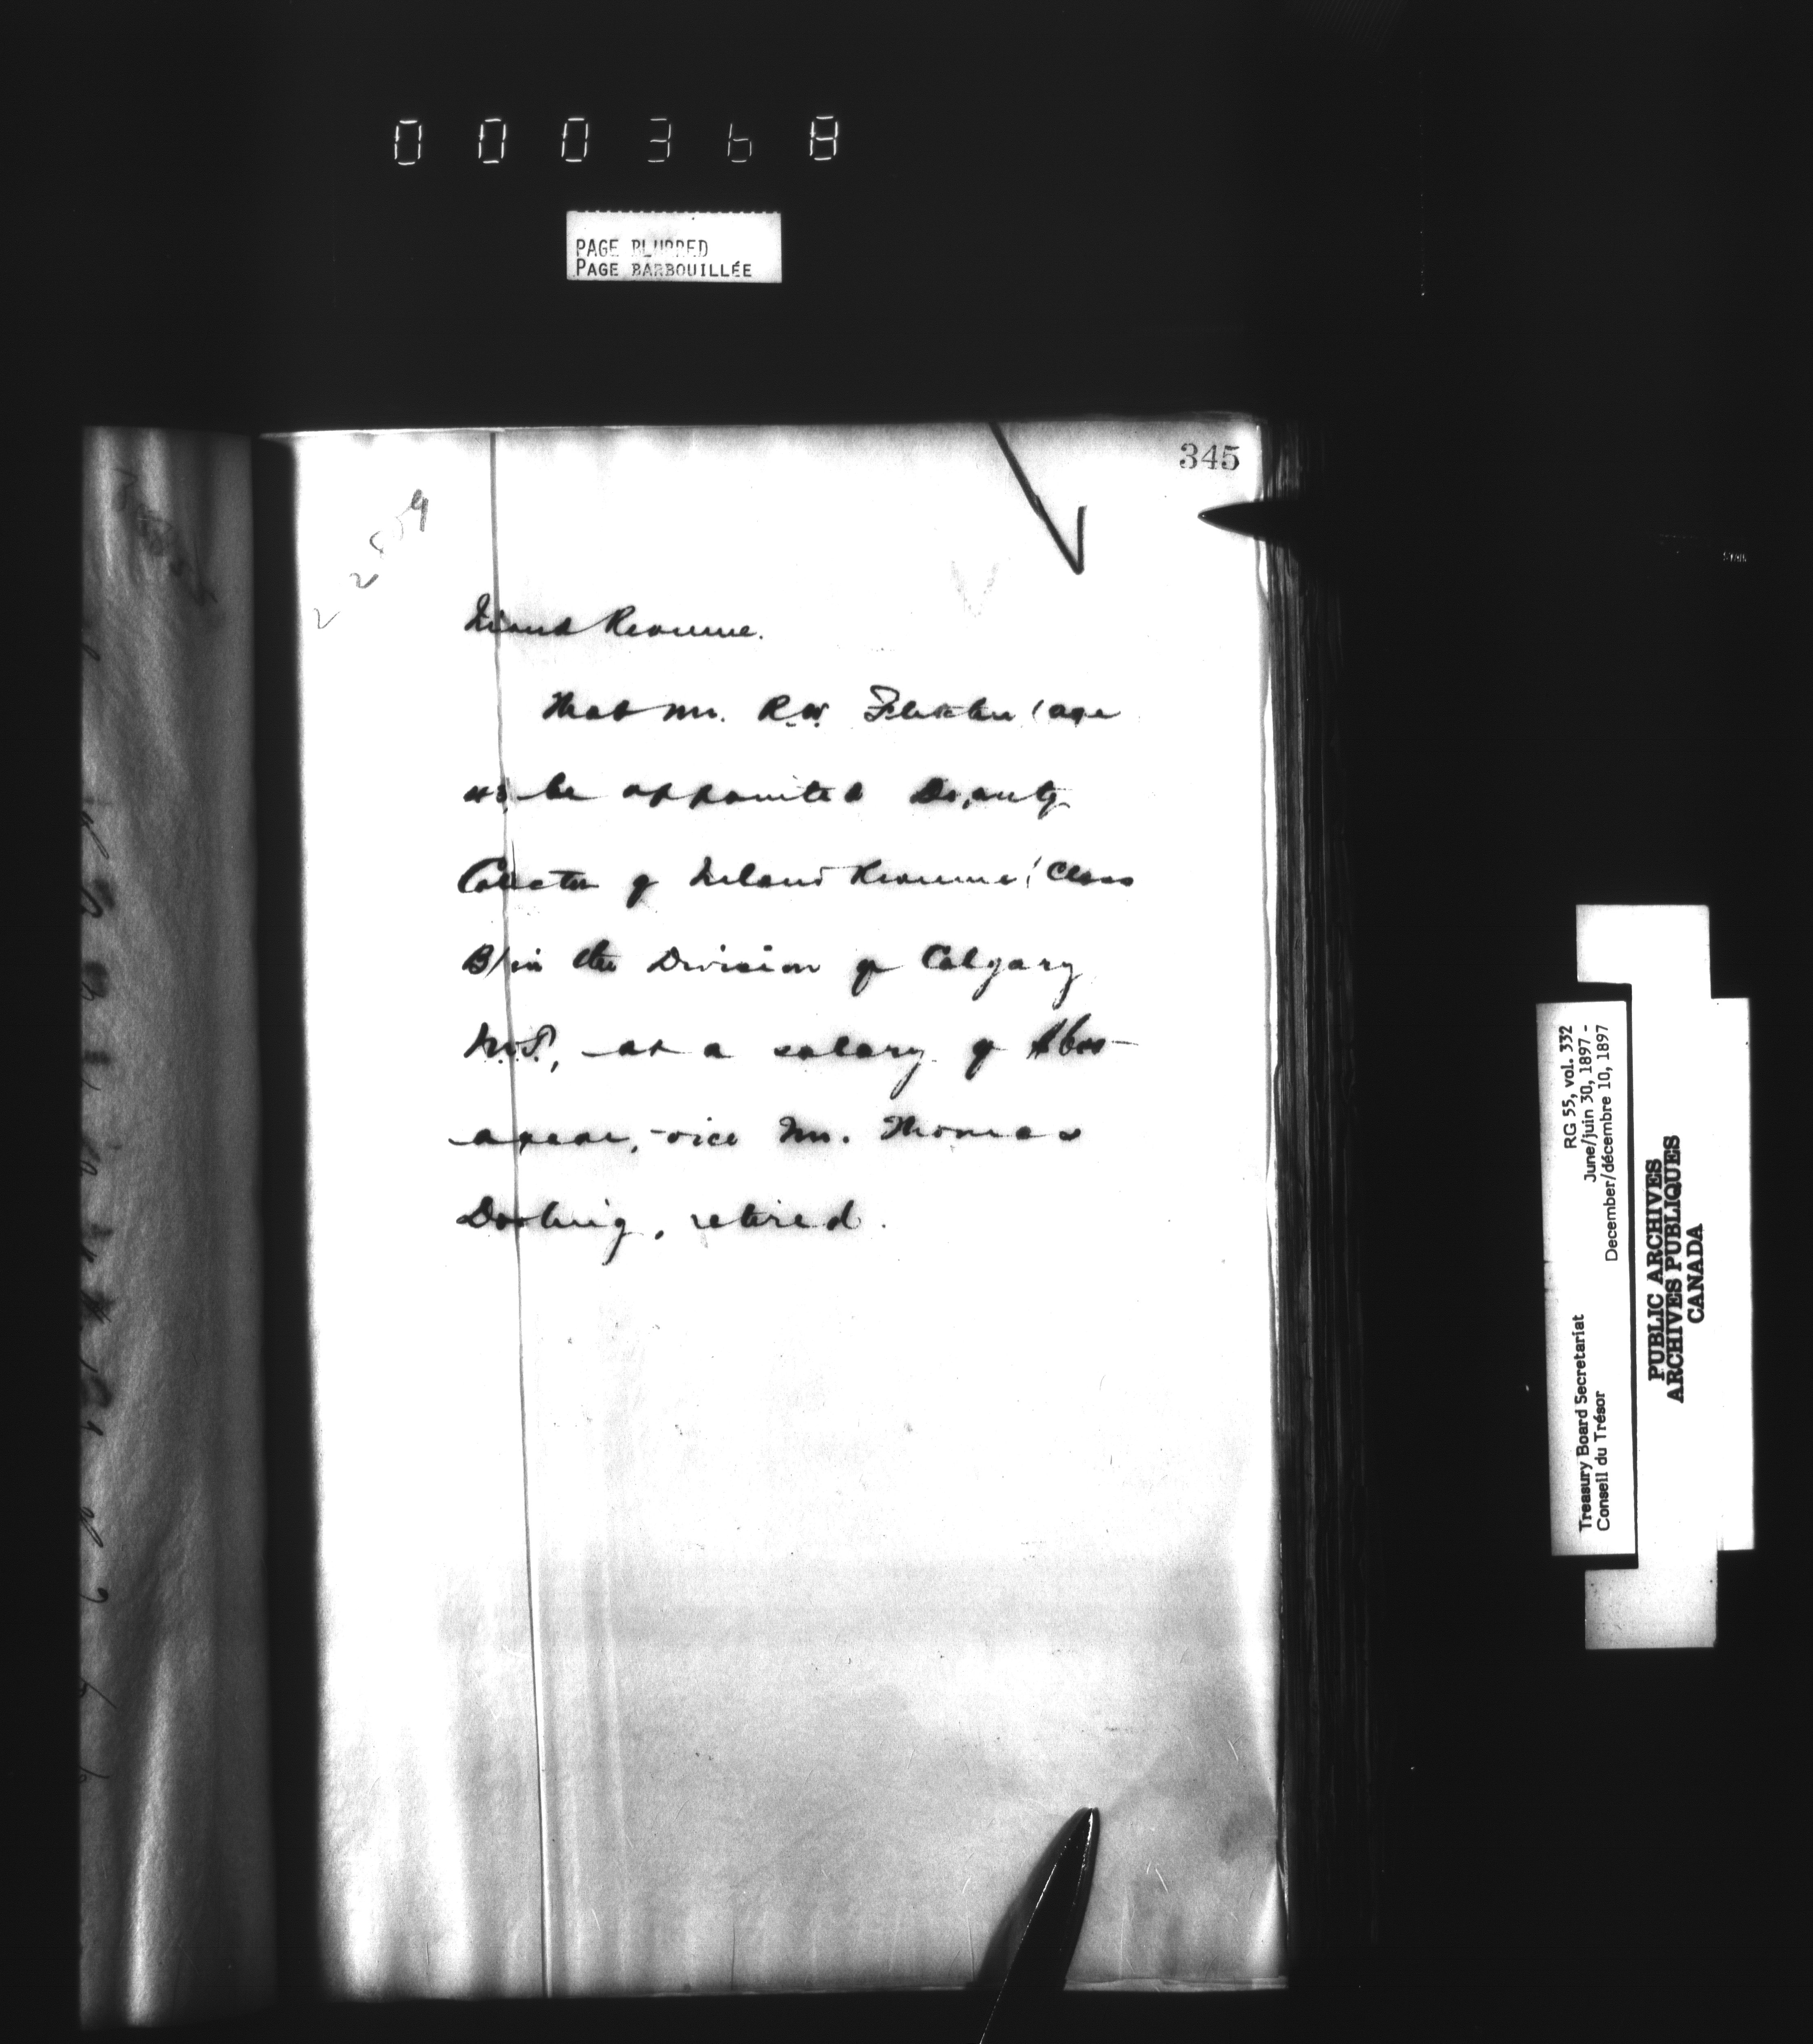 000368
PAGE BLURRED
PAGE BARBOUILLÉE
345
Inland Revenue.
That Mr. R.W. Fletcher (age
43) be appointed Deputy
Collector of Inland Revenue (Class
B) in the Division of Calgary
N.W.T., at a salary of $600-
a year, vice Mr. Thomas
Dowling, retired.
RG 55, vol. 332
June/juin 30, 1897 -
December/décembre 10, 1897
Treasury Board Secretariat
Conseil du Trésor
PUBLIC ARCHIVES
ARCHIVES PUBLIQUES
CANADA